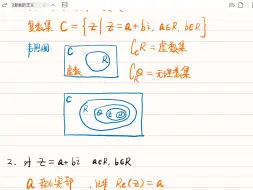 复数集 C = { z | z = a + bi, a∈R, b∈R }
韦恩图:
C
R
虚数
∁_C R = 虚数集
∁_R Q = 无理数集
C
R
Q
Z
N
2. 对 z = a + bi a∈R, b∈R
a 称为实部 记作 Re(z) = a